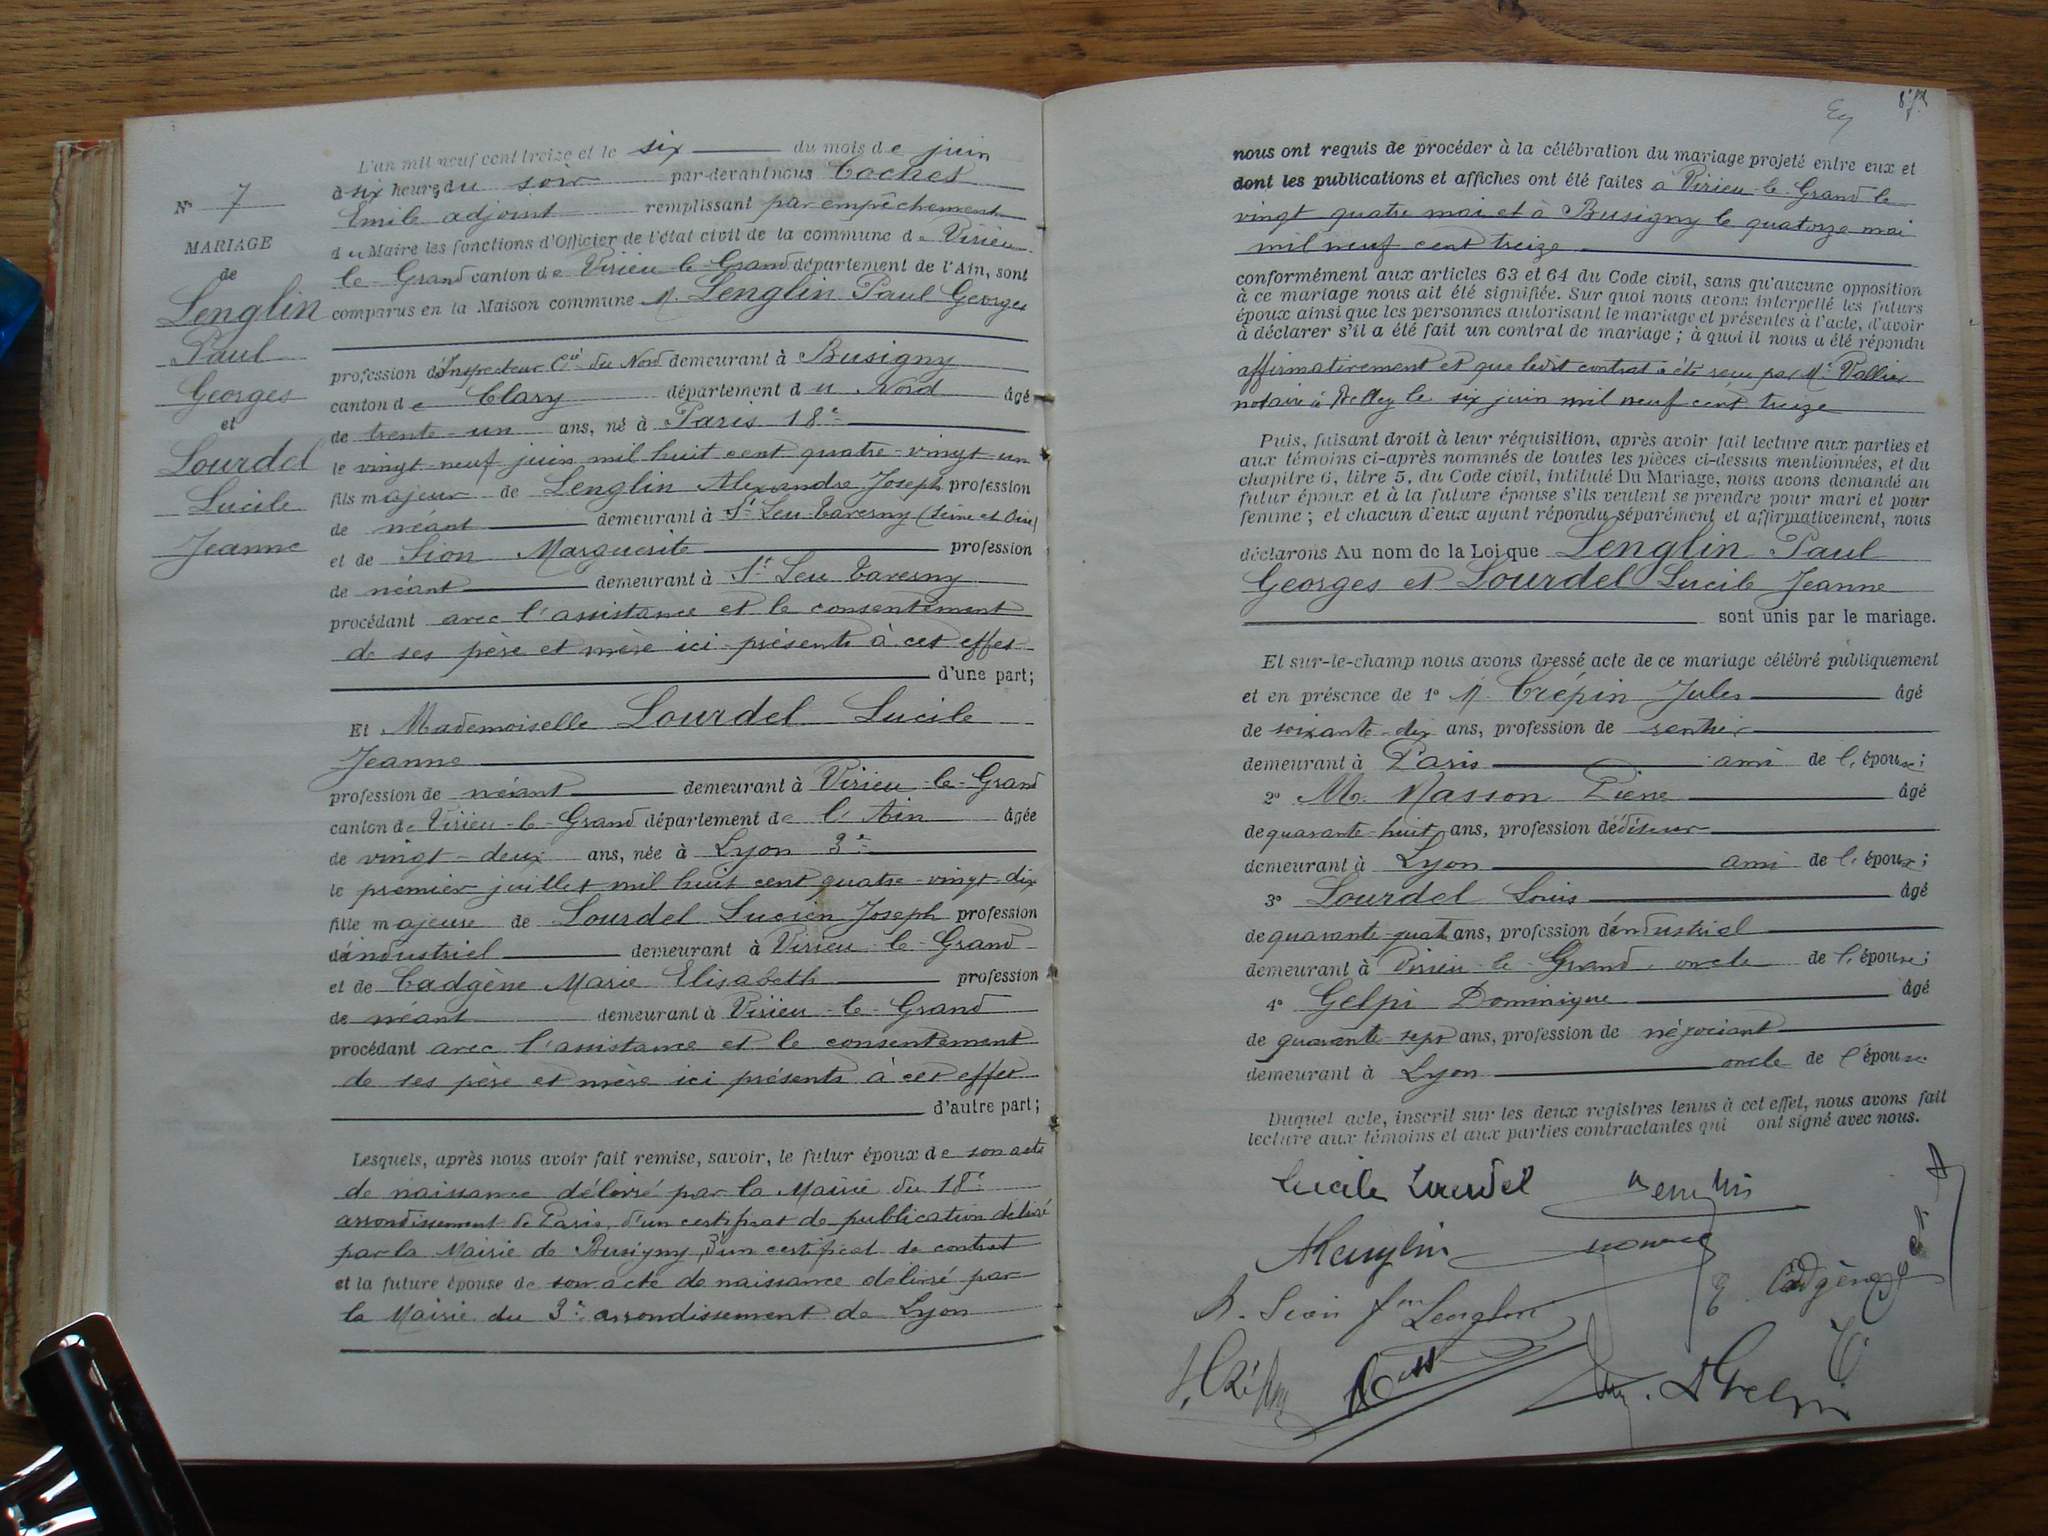 N° 7
MARIAGE
de
Lenglin
Paul
Georges
et
Lourdel
Lucile
Jeanne
L'an mil neuf cent treize et le six du mois de juin
à six heures du soir par-devant nous Cochet
Emile adjoint remplissant par empêchement
du Maire les fonctions d'Officier de l'état civil de la commune de Virieu
le Grand canton de Virieu le Grand département de l'Ain, sont
comparus en la Maison commune M. Lenglin Paul Georges
profession d'Inspecteur Cie du Nord demeurant à Busigny
canton de Clary département du Nord âgé
de trente-un ans, né à Paris 18e
le vingt-neuf juin mil huit cent quatre-vingt-un
fils majeur de Lenglin Alexandre Joseph profession
de néant demeurant à St Leu-Taverny (Seine et Oise)
et de Sion Marguerite profession
de néant demeurant à St Leu Taverny
procédant avec l'assistance et le consentement
de ses père et mère ici présents à cet effet
d'une part;
Et Mademoiselle Lourdel Lucile
Jeanne
profession de néant demeurant à Virieu-le-Grand
canton de Virieu-le-Grand département de l'Ain âgée
de vingt-deux ans, née à Lyon 3e
le premier juillet mil huit cent quatre-vingt-dix
fille majeure de Lourdel Lucien Joseph profession
d'industriel demeurant à Virieu-le-Grand
et de Cadgène Marie Elisabeth profession
de néant demeurant à Virieu-le-Grand
procédant avec l'assistance et le consentement
de ses père et mère ici présents à cet effet
d'autre part;
Lesquels, après nous avoir fait remise, savoir, le futur époux de son acte
de naissance délivré par la Mairie du 18e
arrondissement de Paris, d'un certificat de publication délivré
par la Mairie de Busigny, d'un certificat de contrat
et la future épouse de son acte de naissance délivré par
la Mairie du 3e arrondissement de Lyon
nous ont requis de procéder à la célébration du mariage projeté entre eux et
dont les publications et affiches ont été faites à Virieu-le-Grand le
vingt quatre mai et à Busigny le quatorze mai
mil neuf cent treize
conformément aux articles 63 et 64 du Code civil, sans qu'aucune opposition
à ce mariage nous ait été signifiée. Sur quoi nous avons interpellé les futurs
époux ainsi que les personnes autorisant le mariage et présentes à l'acte, d'avoir
à déclarer s'il a été fait un contrat de mariage; à quoi il nous a été répondu
affirmativement et que ledit contrat a été reçu par Me Vallier
notaire à Belley le six juin mil neuf cent treize
Puis, faisant droit à leur réquisition, après avoir fait lecture aux parties et
aux témoins ci-après nommés de toutes les pièces ci-dessus mentionnées, et du
chapitre 6, titre 5, du Code civil, intitulé Du Mariage, nous avons demandé au
futur époux et à la future épouse s'ils veulent se prendre pour mari et pour
femme; et chacun d'eux ayant répondu séparément et affirmativement, nous
déclarons Au nom de la Loi que Lenglin Paul
Georges et Lourdel Lucile Jeanne
sont unis par le mariage.
Et sur-le-champ nous avons dressé acte de ce mariage célébré publiquement
et en présence de 1° M. Crépin Jules âgé
de soixante-dix ans, profession de rentier
demeurant à Paris ami de l'épouse;
2° Mr. Masson Pierre âgé
de quarante-huit ans, profession d'éditeur
demeurant à Lyon ami de l'époux;
3° Lourdel Louis âgé
de quarante-quatre ans, profession d'industriel
demeurant à Virieu-le-Grand oncle de l'épouse;
4° Gelpi Dominique âgé
de quarante-sept ans, profession de négociant
demeurant à Lyon oncle de l'épouse
Duquel acte, inscrit sur les deux registres tenus à cet effet, nous avons fait
lecture aux témoins et aux parties contractantes qui ont signé avec nous.
Lucile Lourdel Lenglin
ALenglin
E Cadgène
Sion fme Lenglin
J. Crépin
D Gelpi